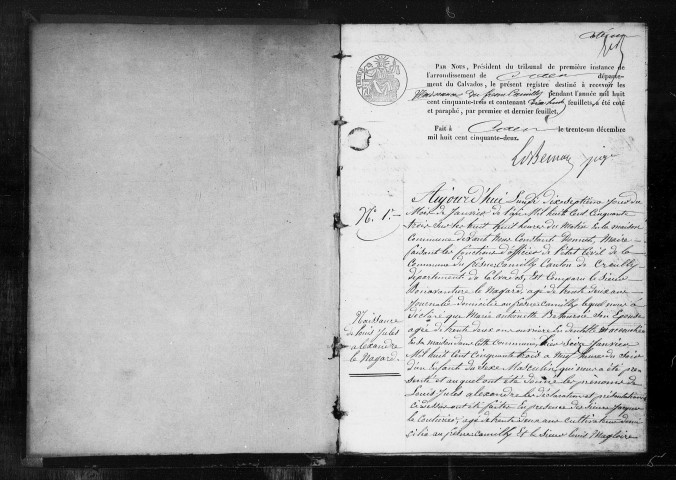 Par Nous, Président du tribunal de première instance de
l'arrondissement de Caen départe-
ment du Calvados, le présent registre destiné à recevoir les
Naissances du fresne Camilly pendant l'année mil huit
cent cinquante-trois et contenant feuillets, a été coté
et paraphé, par premier et dernier feuillet.
Fait à Caen le trente-un décembre
mil huit cent cinquante-deux.
N.° 1.er
Naissance
de Louis Jules
alexandre
le Nagard
Aujourd'hui Lundi dix septieme jour du
Mois de Janvier de l'an Mil huit Cent Cinquante
trois sur les huit heures du Matin En la maison
Commune devant Nous Constant Maire
faisant les fonctions d'officier de l'état Civil de la
Commune du fresne Camilly Canton de Creully
département du Calvados, Est Comparu le Sieur
Bonaventure le Nagard, agé de trente deux ans
Journalier domicilié au fresne Camilly lequel nous a
déclaré que Marie antoinette son Epouse
agée de trente deux ans ouvriere En dentelle Est accouchée
En sa maison dans Cette Commune hier seize Janvier
Mil huit Cent Cinquante trois a Neuf heures du Soir
d'un Enfant du Sexe Masculin, qui nous a été pre-
senté et auquel ont été donné les prénoms de
Louis Jules alexandre les déclaration et présentation
Ci dessus ont été faites En présence des Sieurs Jacques
le Couturier, agé de trente deux ans Cultivateur domi-
cilié au fresne Camilly Et le Sieur Louis Magloire